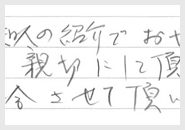 人の紹介でお
親切にして頂
させて頂い